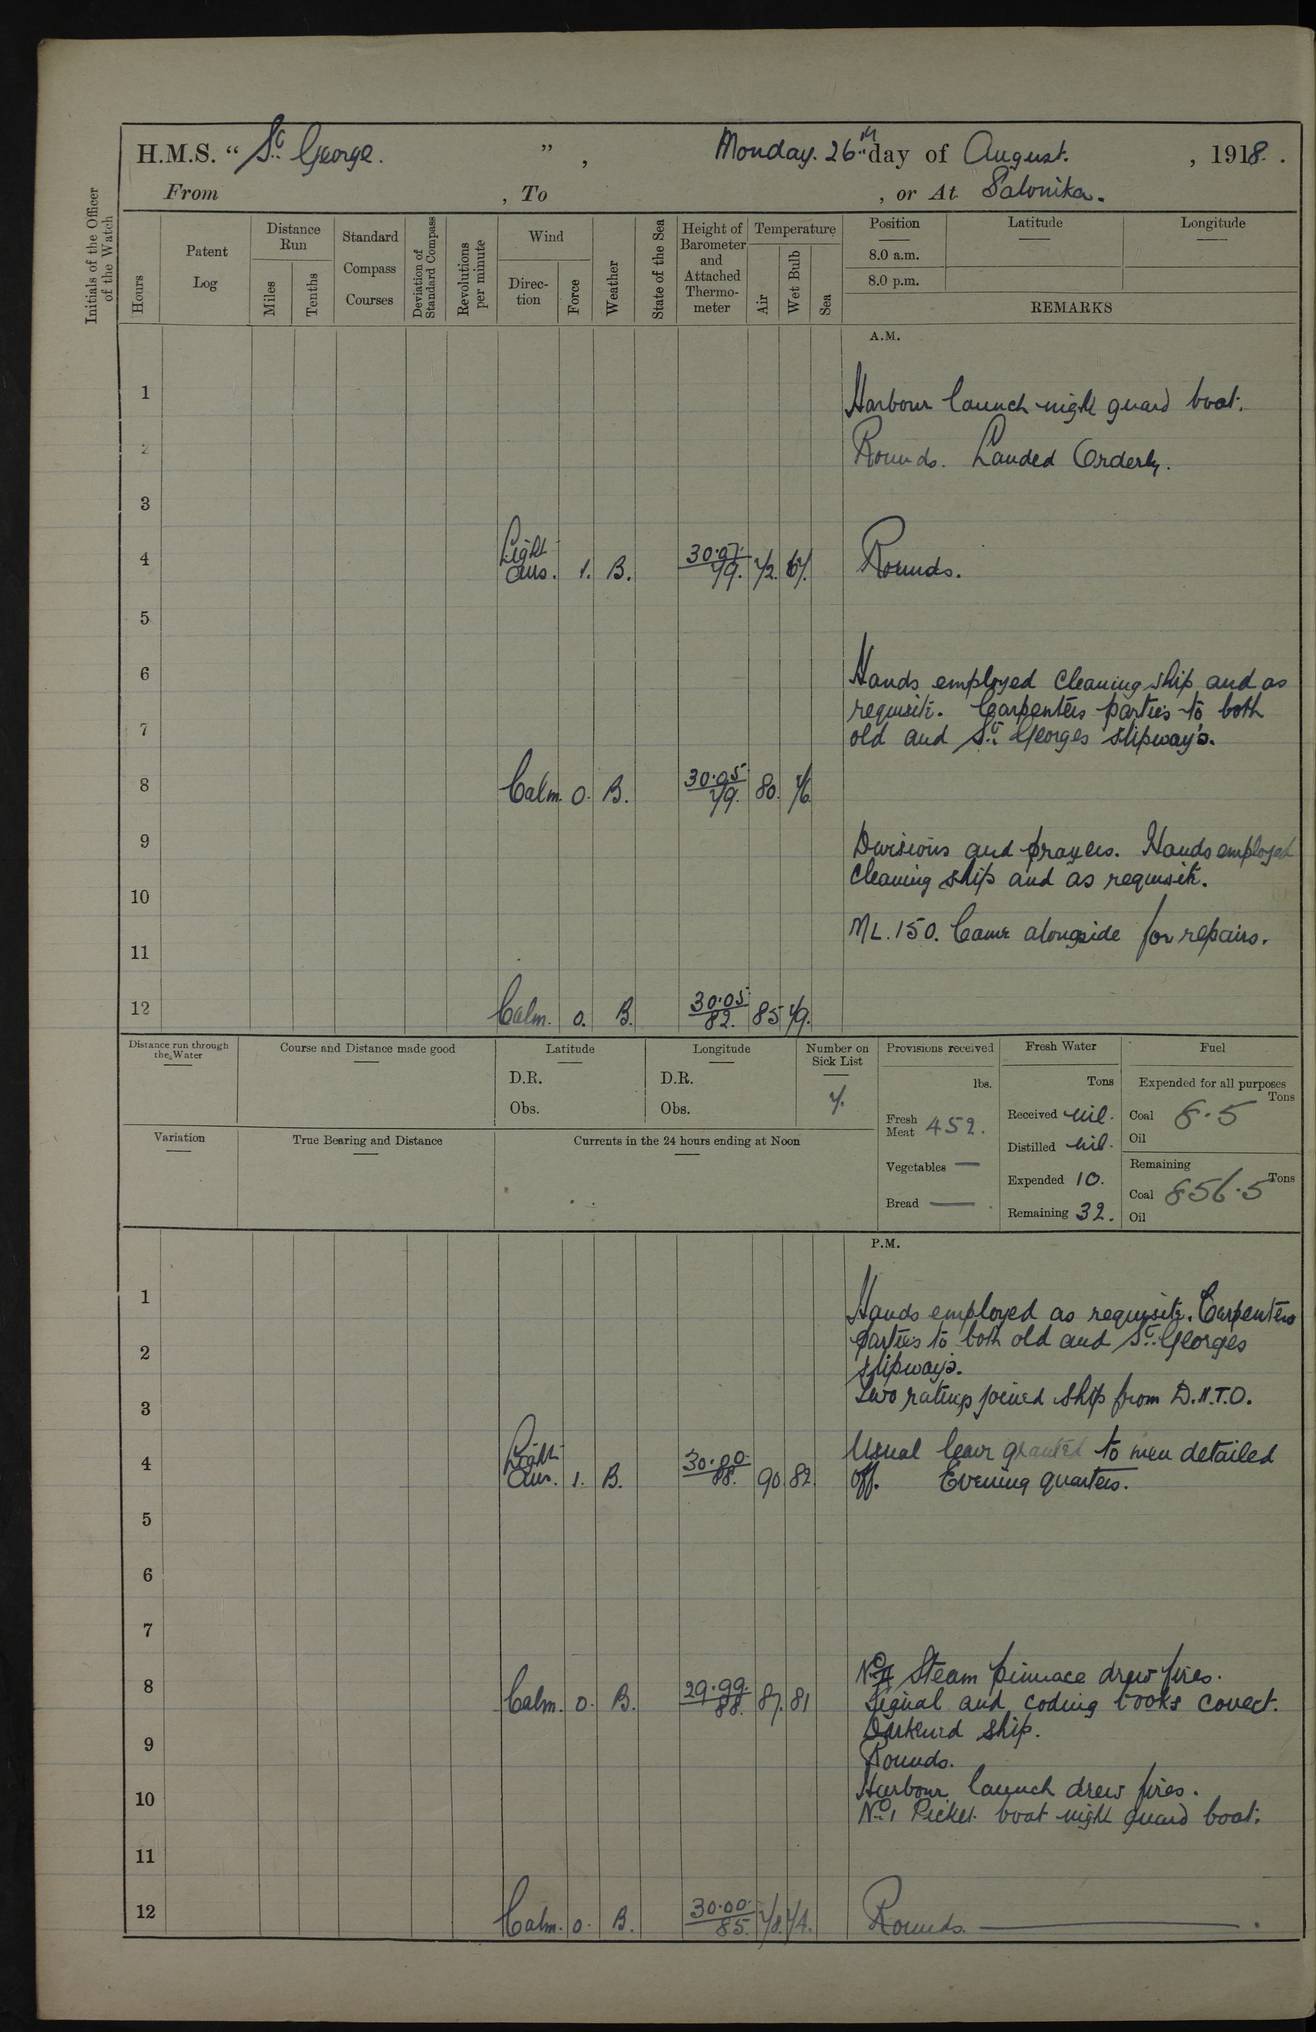 H.M.S. “ St. George. ” , Monday. 26th day of August. , 1918.
From , To , or At Salonika.
Initials of the Officer of the Watch
Hours
Patent Log
Distance Run
Miles
Tenths
Standard Compass Courses
Deviation of Standard Compass
Revolutions per minute
Wind
Direction
Force
Weather
State of the Sea
Height of Barometer and Attached Thermometer
Temperature
Air
Wet Bulb
Sea
Position
Latitude
Longitude
8.0 a.m.
8.0 p.m.
REMARKS
A.M.
1
Harbour launch night guard boat.
2
Rounds. Landed Orderly.
3
4 Light airs. 1. B. 30.07. 79. 72. 67. Rounds.
5
6
Hands employed cleaning ship and as
requisite. Carpenters parties to both
7
old and St. Georges slipway's.
8 Calm. 0. B. 30.05 79. 80. 76
9
Divisions and prayers. Hands employed
cleaning ship and as requisite.
10
ML. 150. Came alongside for repairs.
11
12 Calm. 0. B. 30.05 82. 85 79.
Distance run through the Water
Course and Distance made good
Latitude
D.R.
Obs.
Longitude
D.R.
Obs.
Number on Sick List
7.
Provisions received
lbs.
Fresh Meat 452.
Vegetables —
Bread —
Fresh Water
Tons
Received nil.
Distilled nil.
Expended 10.
Remaining 32.
Fuel
Expended for all purposes
Tons
Coal 8.5
Oil
Remaining
Tons
Coal 856.5
Oil
Variation
True Bearing and Distance
Currents in the 24 hours ending at Noon
P.M.
1
Hands employed as requisite. Carpenters
parties to both old and St. Georges
2
slipways.
3
Two ratings joined ship from D.N.T.O.
4 Light Airs. 1. B. 30.00 88. 90. 82.
Usual leave granted to men detailed
off. Evening quarters.
5
6
7
No. II Steam pinnace drew fires.
8 Calm. 0. B. 29.99. 88. 87. 81
Signal and coding books correct.
Darkened ship.
9
Rounds.
Harbour launch drew fires.
10
No. 1 Picket boat night guard boat.
11
12 Calm. 0. B. 30.00 85. 78. 74. Rounds.